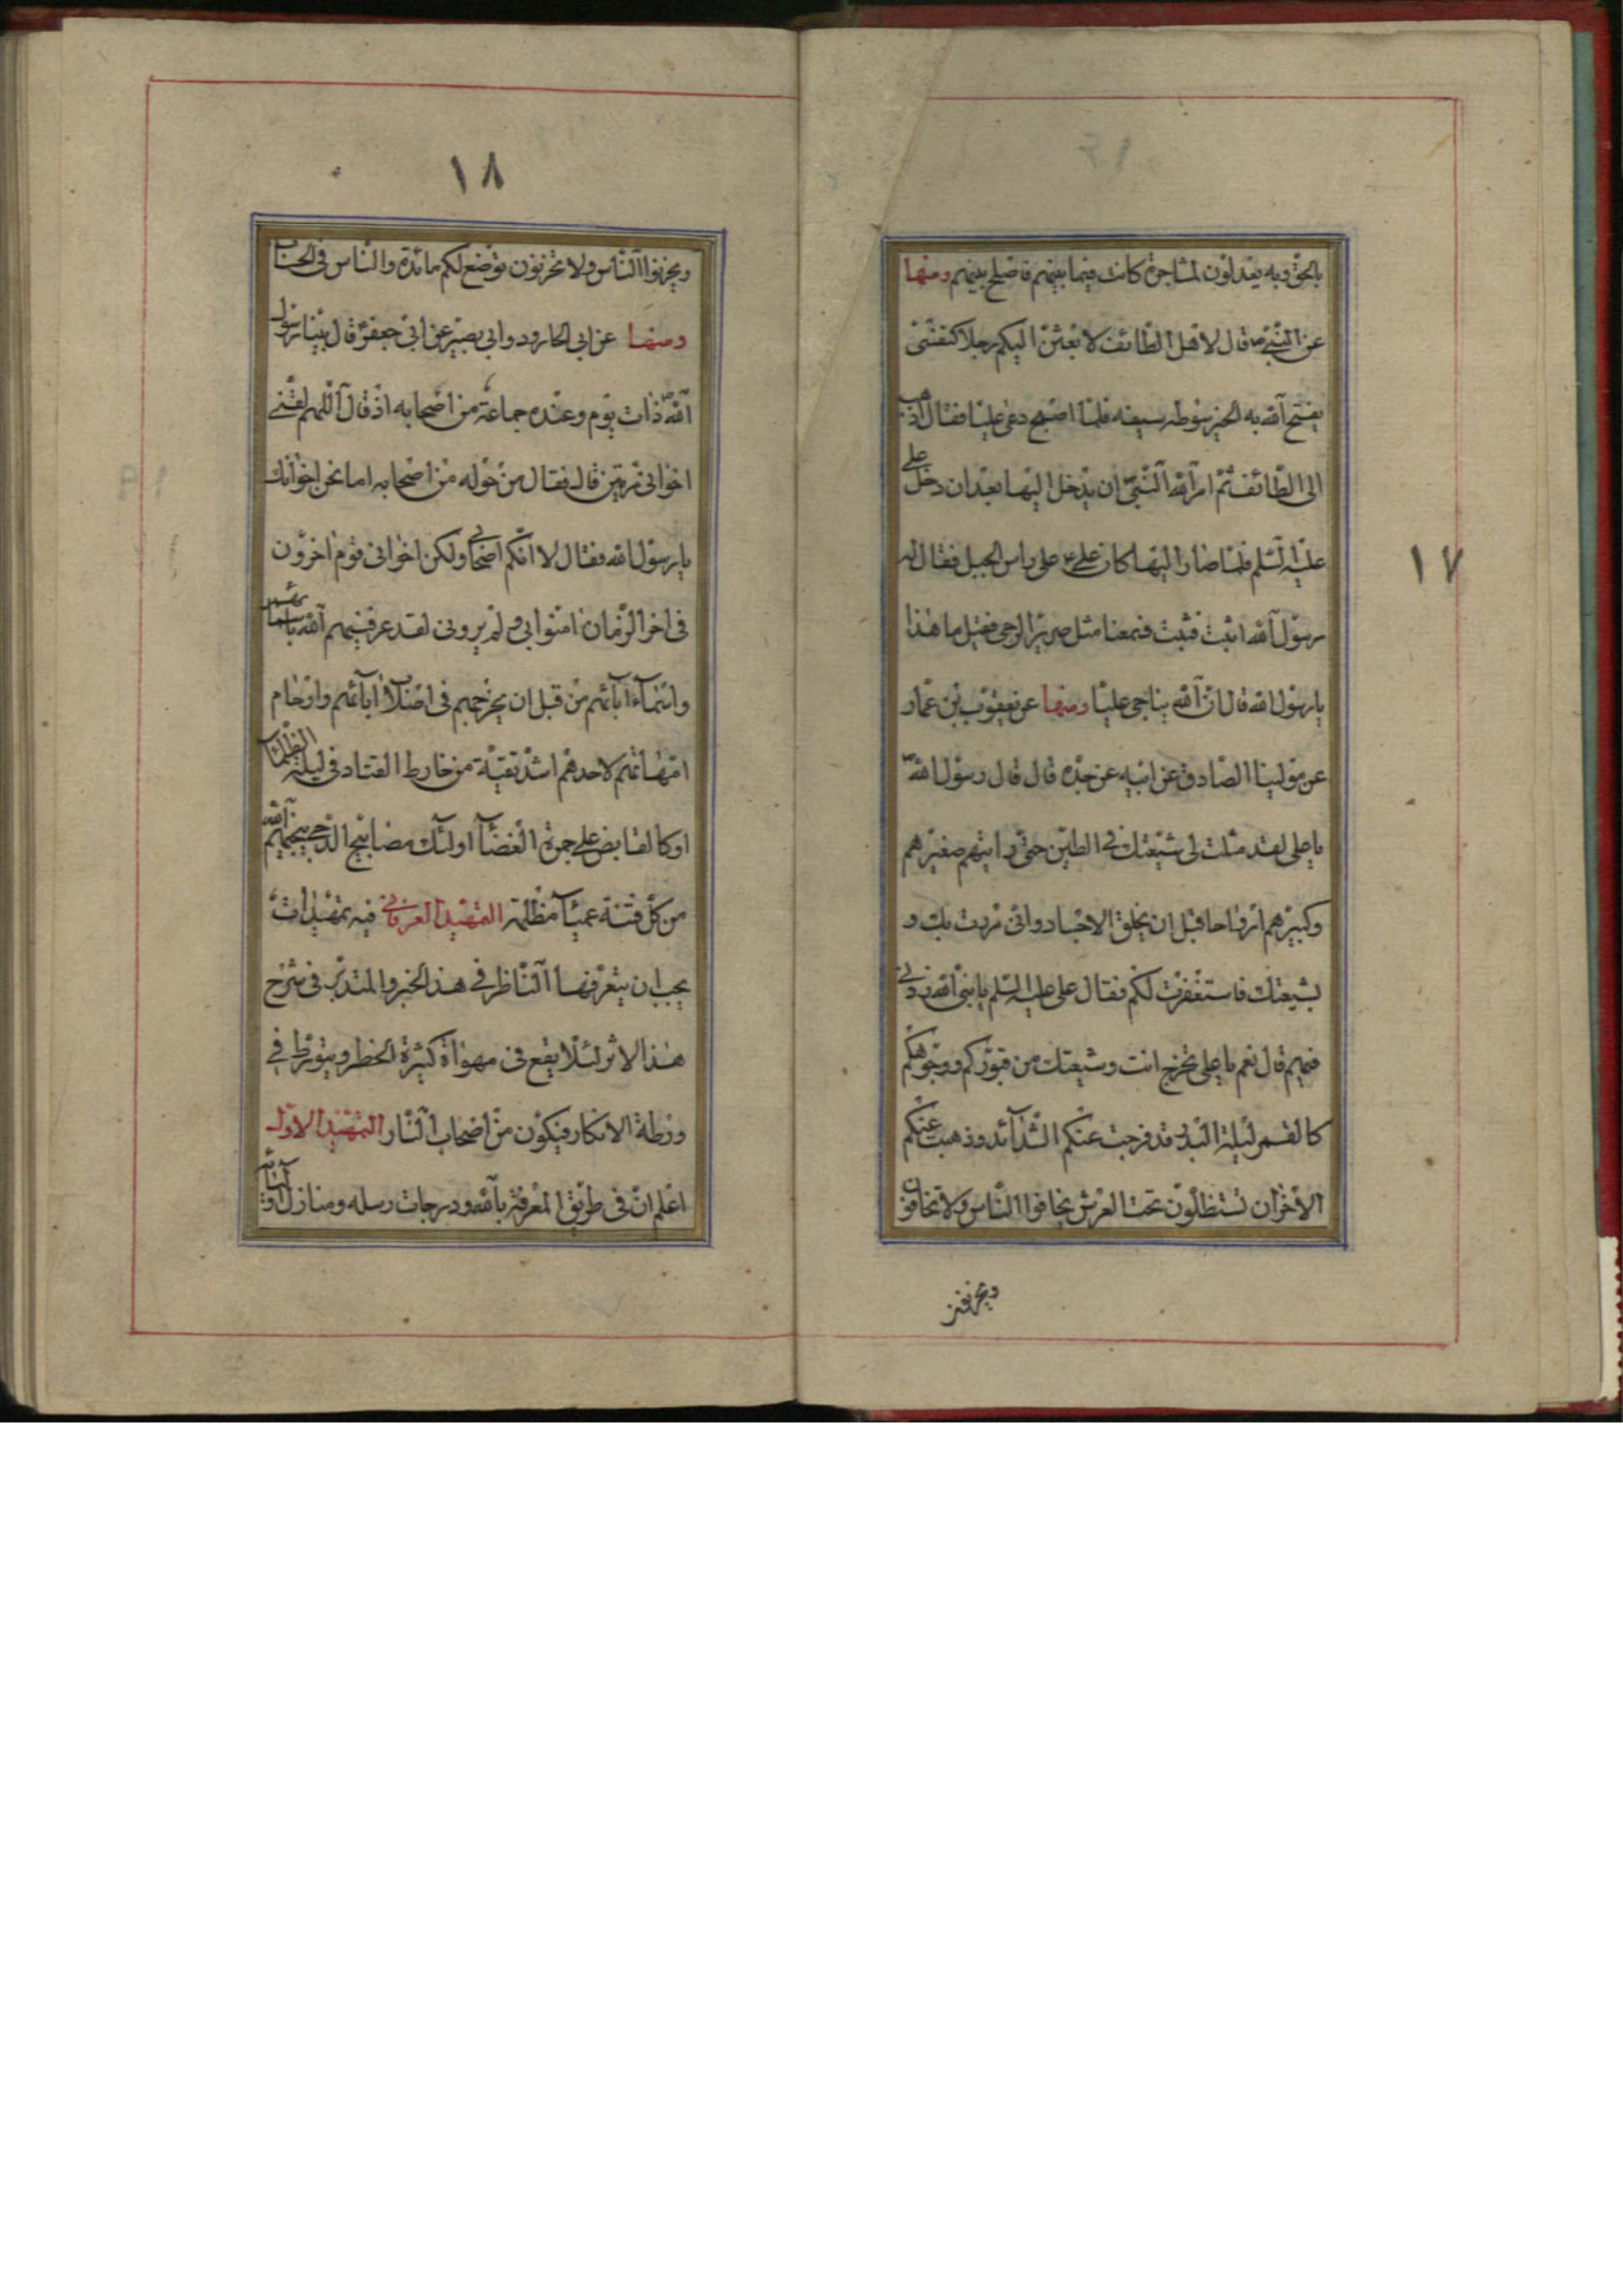 ١٧
بالحق وبه يعدلون لمشاجرة كانت فيما بينهم فاصلح بينهم ومنها
عن النبي ص قال لاهل الطائف لابعثن اليكم رجلا كنفسى
يفتح الله به الخير سوطه سيفه فلما اصبح دعى عليا فقال اذهب
الى الطائف ثم امر الله النبى ان يدخل اليها بعد ان دخل على
عليه السلم فلما صار اليها كان على ع على راس الجبل فقال له
رسول الله اثبت فثبت فسمعنا مثل صرير الرحى فقيل ما هذا
يا رسول الله قال ان الله يناجى عليا ومنها عن يعقوب بن عمار
عن مولينا الصادق عن ابيه عن جده قال قال رسول الله ص
يا على لقد مثلت لى شيعتك فى الطين حتى رايتهم صغيرهم
وكبيرهم ارواحا قبل ان يخلق الاجساد وانى مررت بك و
بشيعتك فاستغفرت لكم فقال على عليه السلم يا نبى الله زدنى
فيهم قال نعم يا على تخرج انت وشيعتك من قبوركم ووجوهكم
كالقمر ليلة البدر قد فرجت عنكم الشدائد وذهبت عنكم
الاحزان تستظلون تحت العرش يخافوا الناس ولا تخافون
ويحزنو
١٨
ويحزنوا الناس ولا تحزنون توضع لكم مائدة والناس فى الحساب
ومنها عن ابى الجارود وابى بصير عن ابى جعفر ع قال بينا رسول
الله ص ذات يوم وعنده جماعة من اصحابه اذ قال اللهم لقنى
اخوانى مرتين قال فقال من حوله من اصحابه اما نحن اخوانك
يا رسول الله فقال لا انكم اصحابى ولكن اخوانى قوم اخرون
فى اخر الزمان امنوا بى ولم يرونى لقد عرفنيهم الله باسمائهم
واسماء آبائهم من قبل ان يخرجهم فى اصلاب آبائهم وارحام
امهاتهم لاحدهم اشد تقية من خارط القتاد فى ليلة الظلماء
او كالقابض على جمرة الغضا اولئك مصابيح الدجى ينجيهم الله
من كل فتنة عمياء مظلمة التمهيد العرفانى فيه تمهيدات
يجب ان يتعرفها الناظر فى هذا الخبر والمتدبر فى شرح
هذا الاثر لئلا يقع فى مهواة كثيرة الخطر ويتورط فى
ورطة الانكار فيكون من اصحاب النار التمهيد الاول
اعلم ان فى طريق المعرفة بالله ودرجات رسله ومنازل